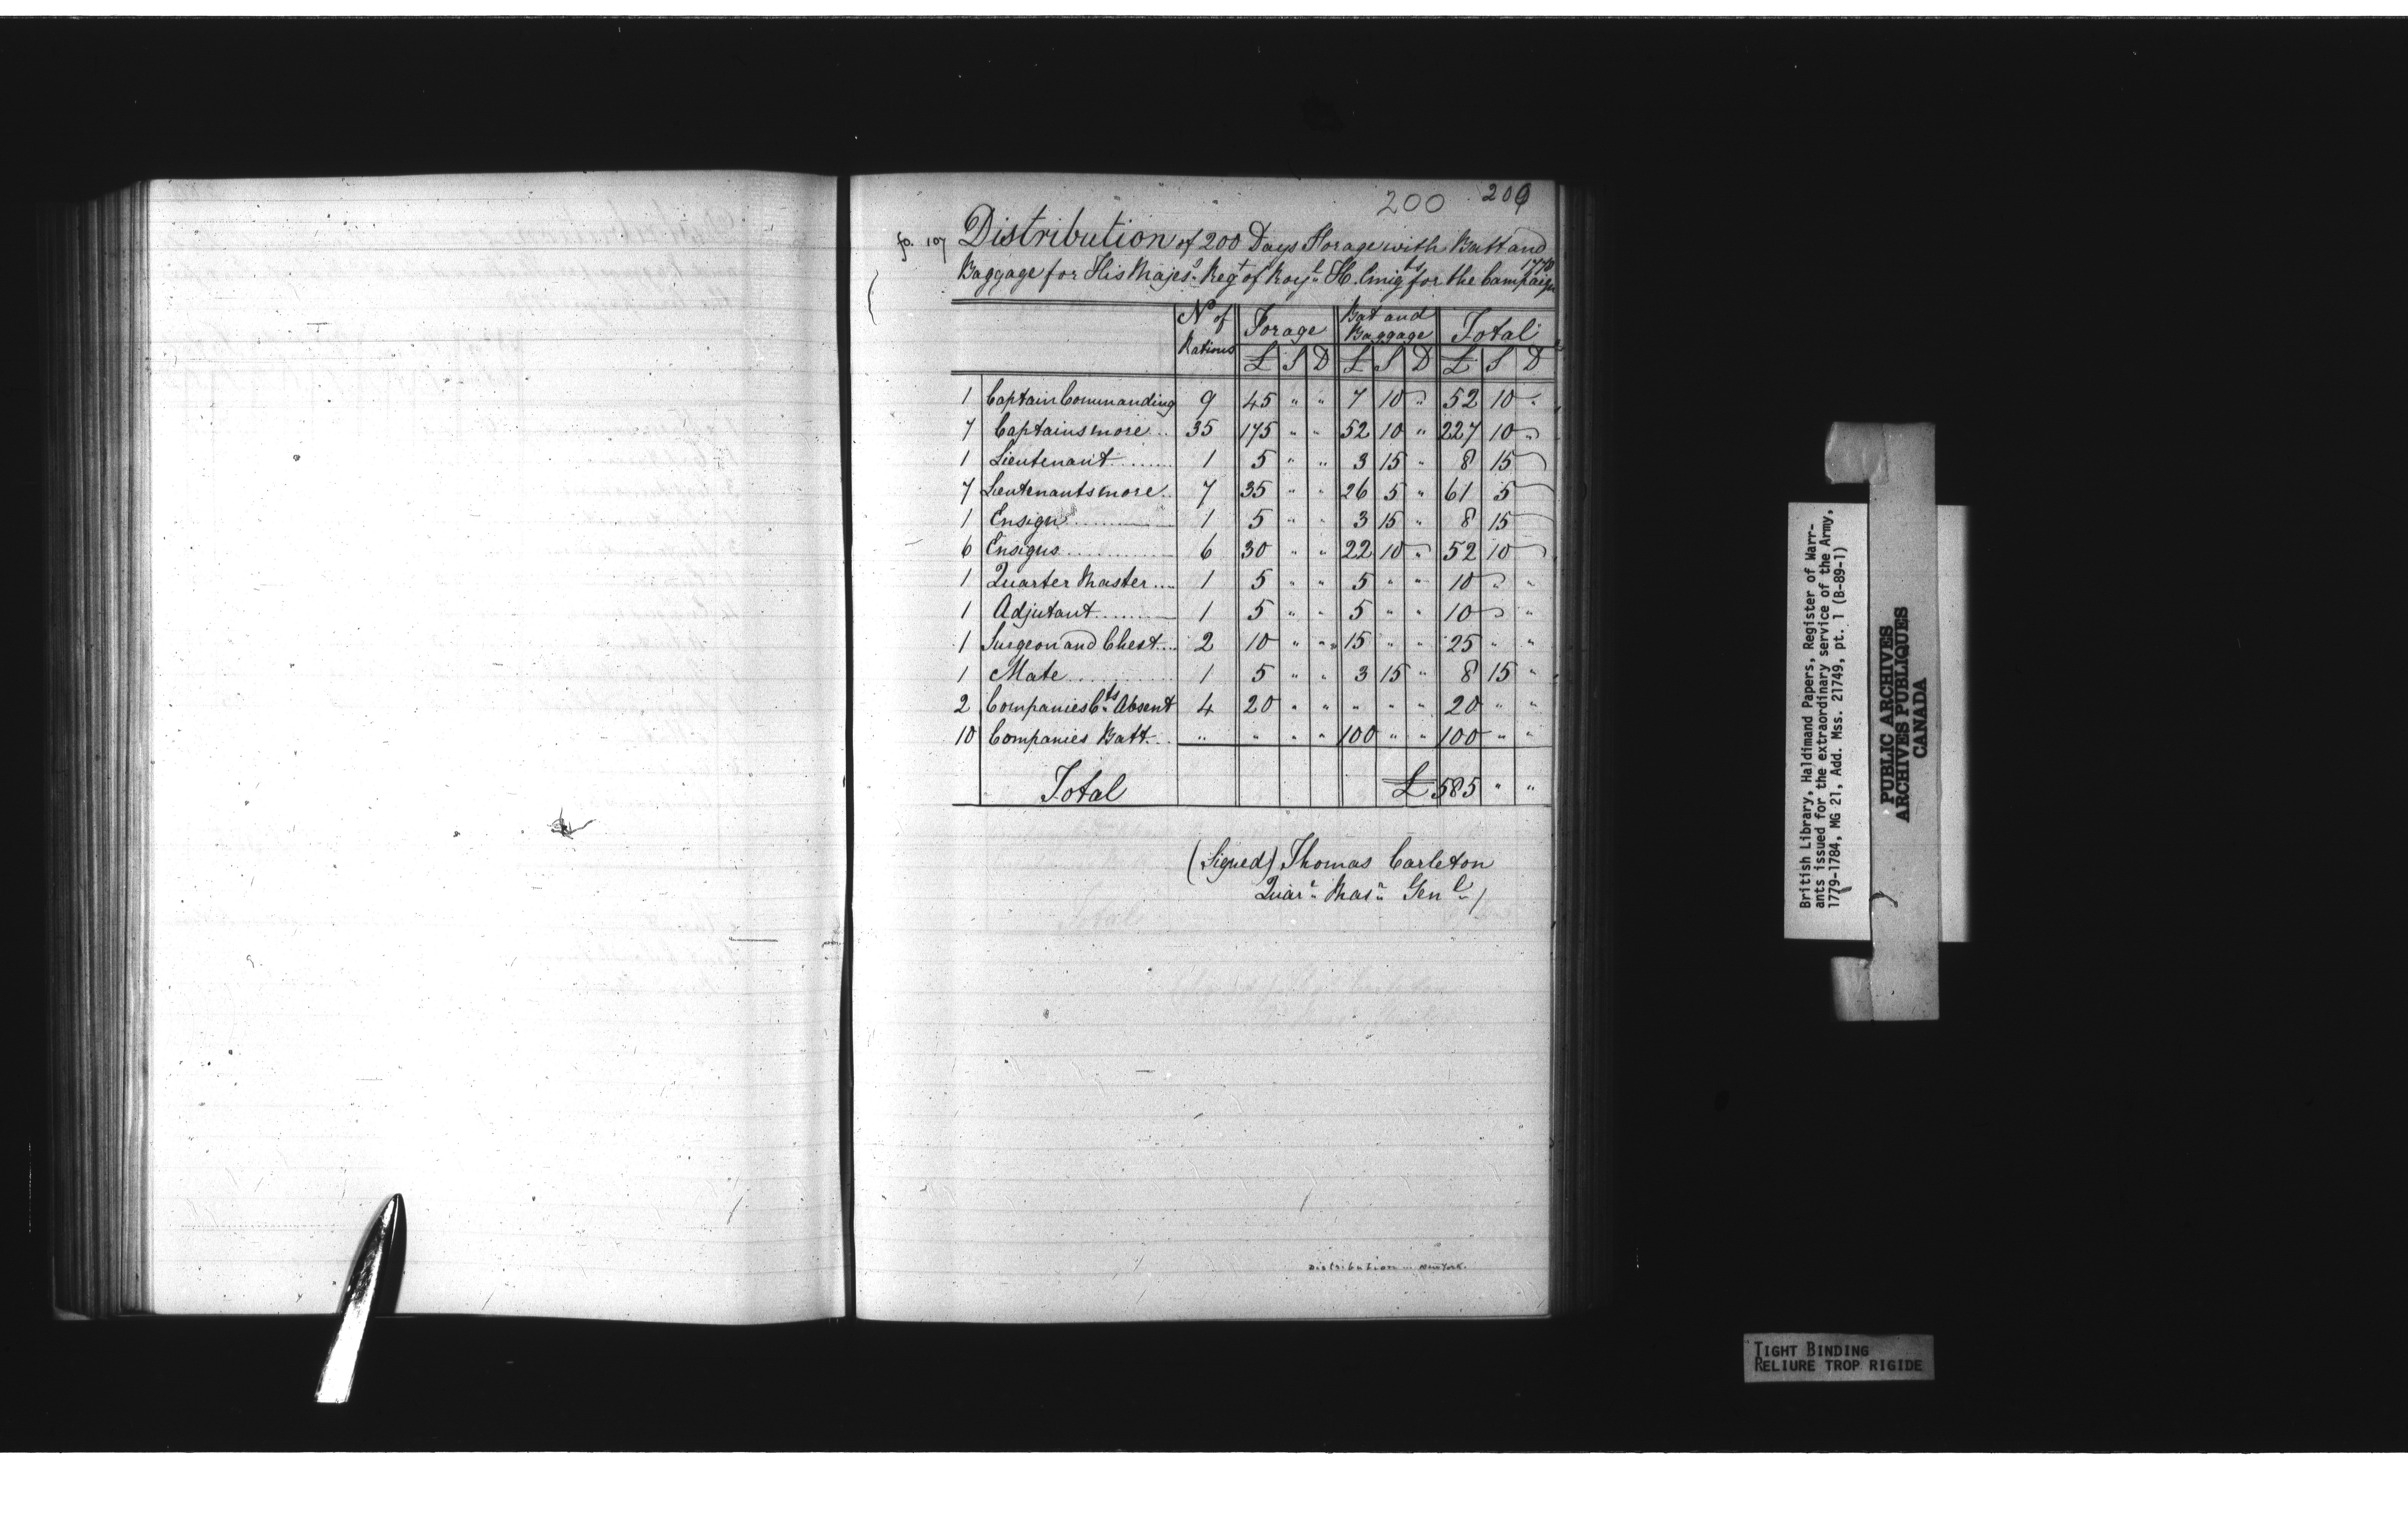 200 200
fo. 107 Distribution of 200 Days Forage with Batt and
Baggage for His Majes.s Reg.t of Roy.l H. Emig.ts for the Campaign 1778
N.o of Rations Forage Bat and Baggage Total
£ S D £ S D £ S D
1 Captain Commanding 9 45 " " 7 10 " 52 10 "
7 Captains more.. 35 175 " " 52 10 " 227 10 "
1 Lieutenant......... 1 5 " " 3 15 " 8 15
7 Lieutenants more.. 7 35 " " 26 5 " 61 5
1 Ensign............ 1 5 " " 3 15 8 15
6 Ensigns............ 6 30 " " 22 10 " 52 10
1 Quarter Master.... 1 5 " " 5 " " 10 " "
1 Adjutant......... 1 5 " " 5 " " 10 " "
1 Surgeon and Chest.... 2 10 " " 15 " " 25 " "
1 Mate............ 1 5 " " 3 15 " 8 15 "
2 Companies C.ts Absent 4 20 " " " " " 20 " "
10 Companies Batt... " " " " 100 " " 100 " "
Total £ 585 " "
(Signed) Thomas Carleton
Quar.r Mas.r Gen.l)
Distribution ... New York.
British Library, Haldimand Papers, Register of Warr-
ants issued for the extraordinary service of the Army,
1779-1784, MG 21, Add. Mss. 21749, pt. 1 (B-89-1)
PUBLIC ARCHIVES
ARCHIVES PUBLIQUES
CANADA
TIGHT BINDING
RELIURE TROP RIGIDE